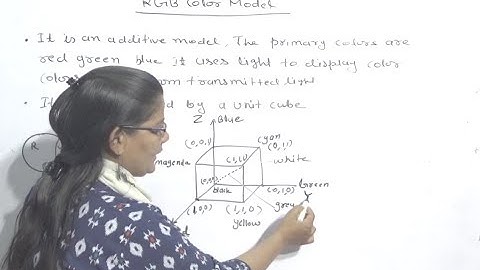 RGB Color Model
• It is an additive model, The primary colors are
red green blue It uses light to display color
transmitted light
by a unit cube
Z Blue
(0,0,1)
Cyan
(0,1,1)
magenda
(1,1,1)
white
(0,0,0)
black
(0,1,0)
Green
Y
(1,0,0)
(1,1,0)
grey
yellow
R